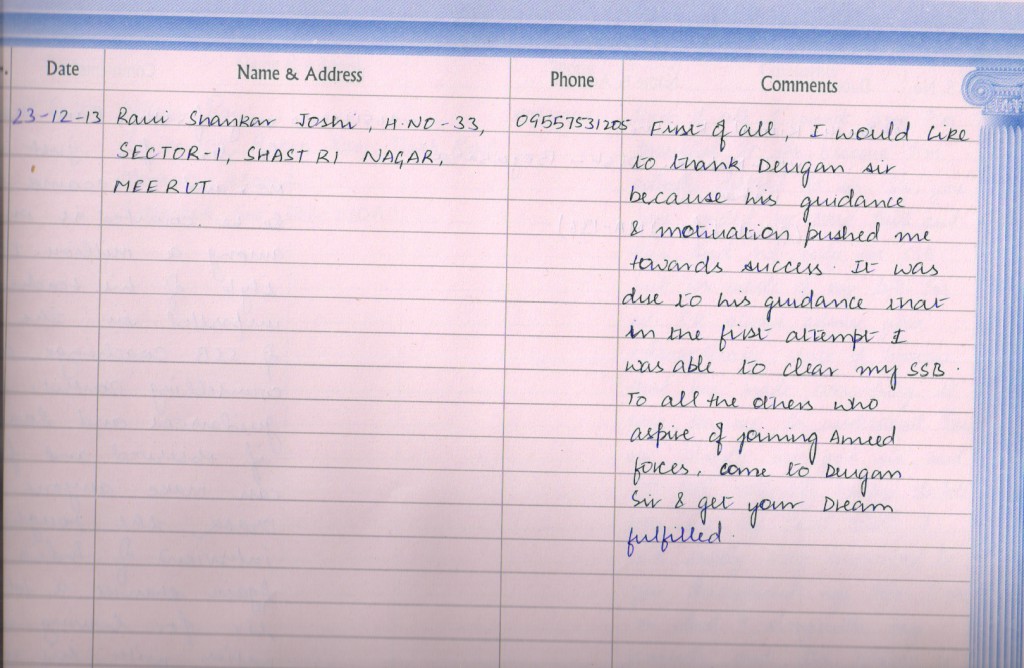 Date Name & Address Phone Comments
23-12-13 Ravi Shankar Joshi, H.NO-33, 09557531205 First of all, I would like
SECTOR-1, SHASTRI NAGAR, to thank Deugan sir
MEERUT because his guidance
& motivation pushed me
towards success. It was
due to his guidance that
in the first attempt I
was able to clear my SSB.
To all the others who
aspire of joining Armed
forces, come to Deugan
Sir & get your Dream
fulfilled.